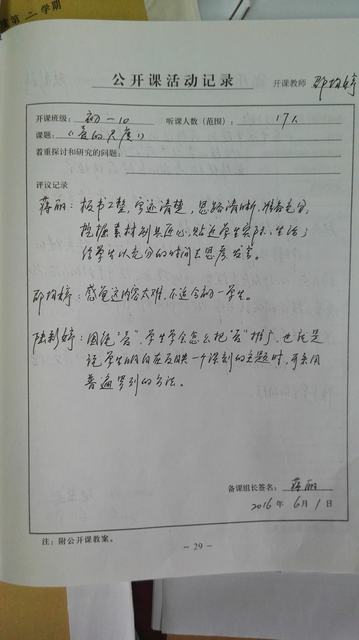 第二学期
公开课活动记录
开课教师 邵均婷
开课班级：初一10 听课人数（范围）：17人
课题：《爱的尺度》
着重探讨和研究的问题：
评议记录
蒋丽：板书工整，字迹清楚，思路清晰，准备充分，
挖掘素材别具匠心，贴近学生实际、生活，
给学生以充分的时间去思考发言。
邵均婷：感觉这内容太难，不适合初一学生。
陆莉婷：围绕“爱”，学生学会怎么把“爱”推广，也就是
说学生的内容反映一个深刻的主题时，可采用
普遍罗列的方法。
备课组长签名：蒋丽
2016年6月1日
注：附公开课教案。
－29－